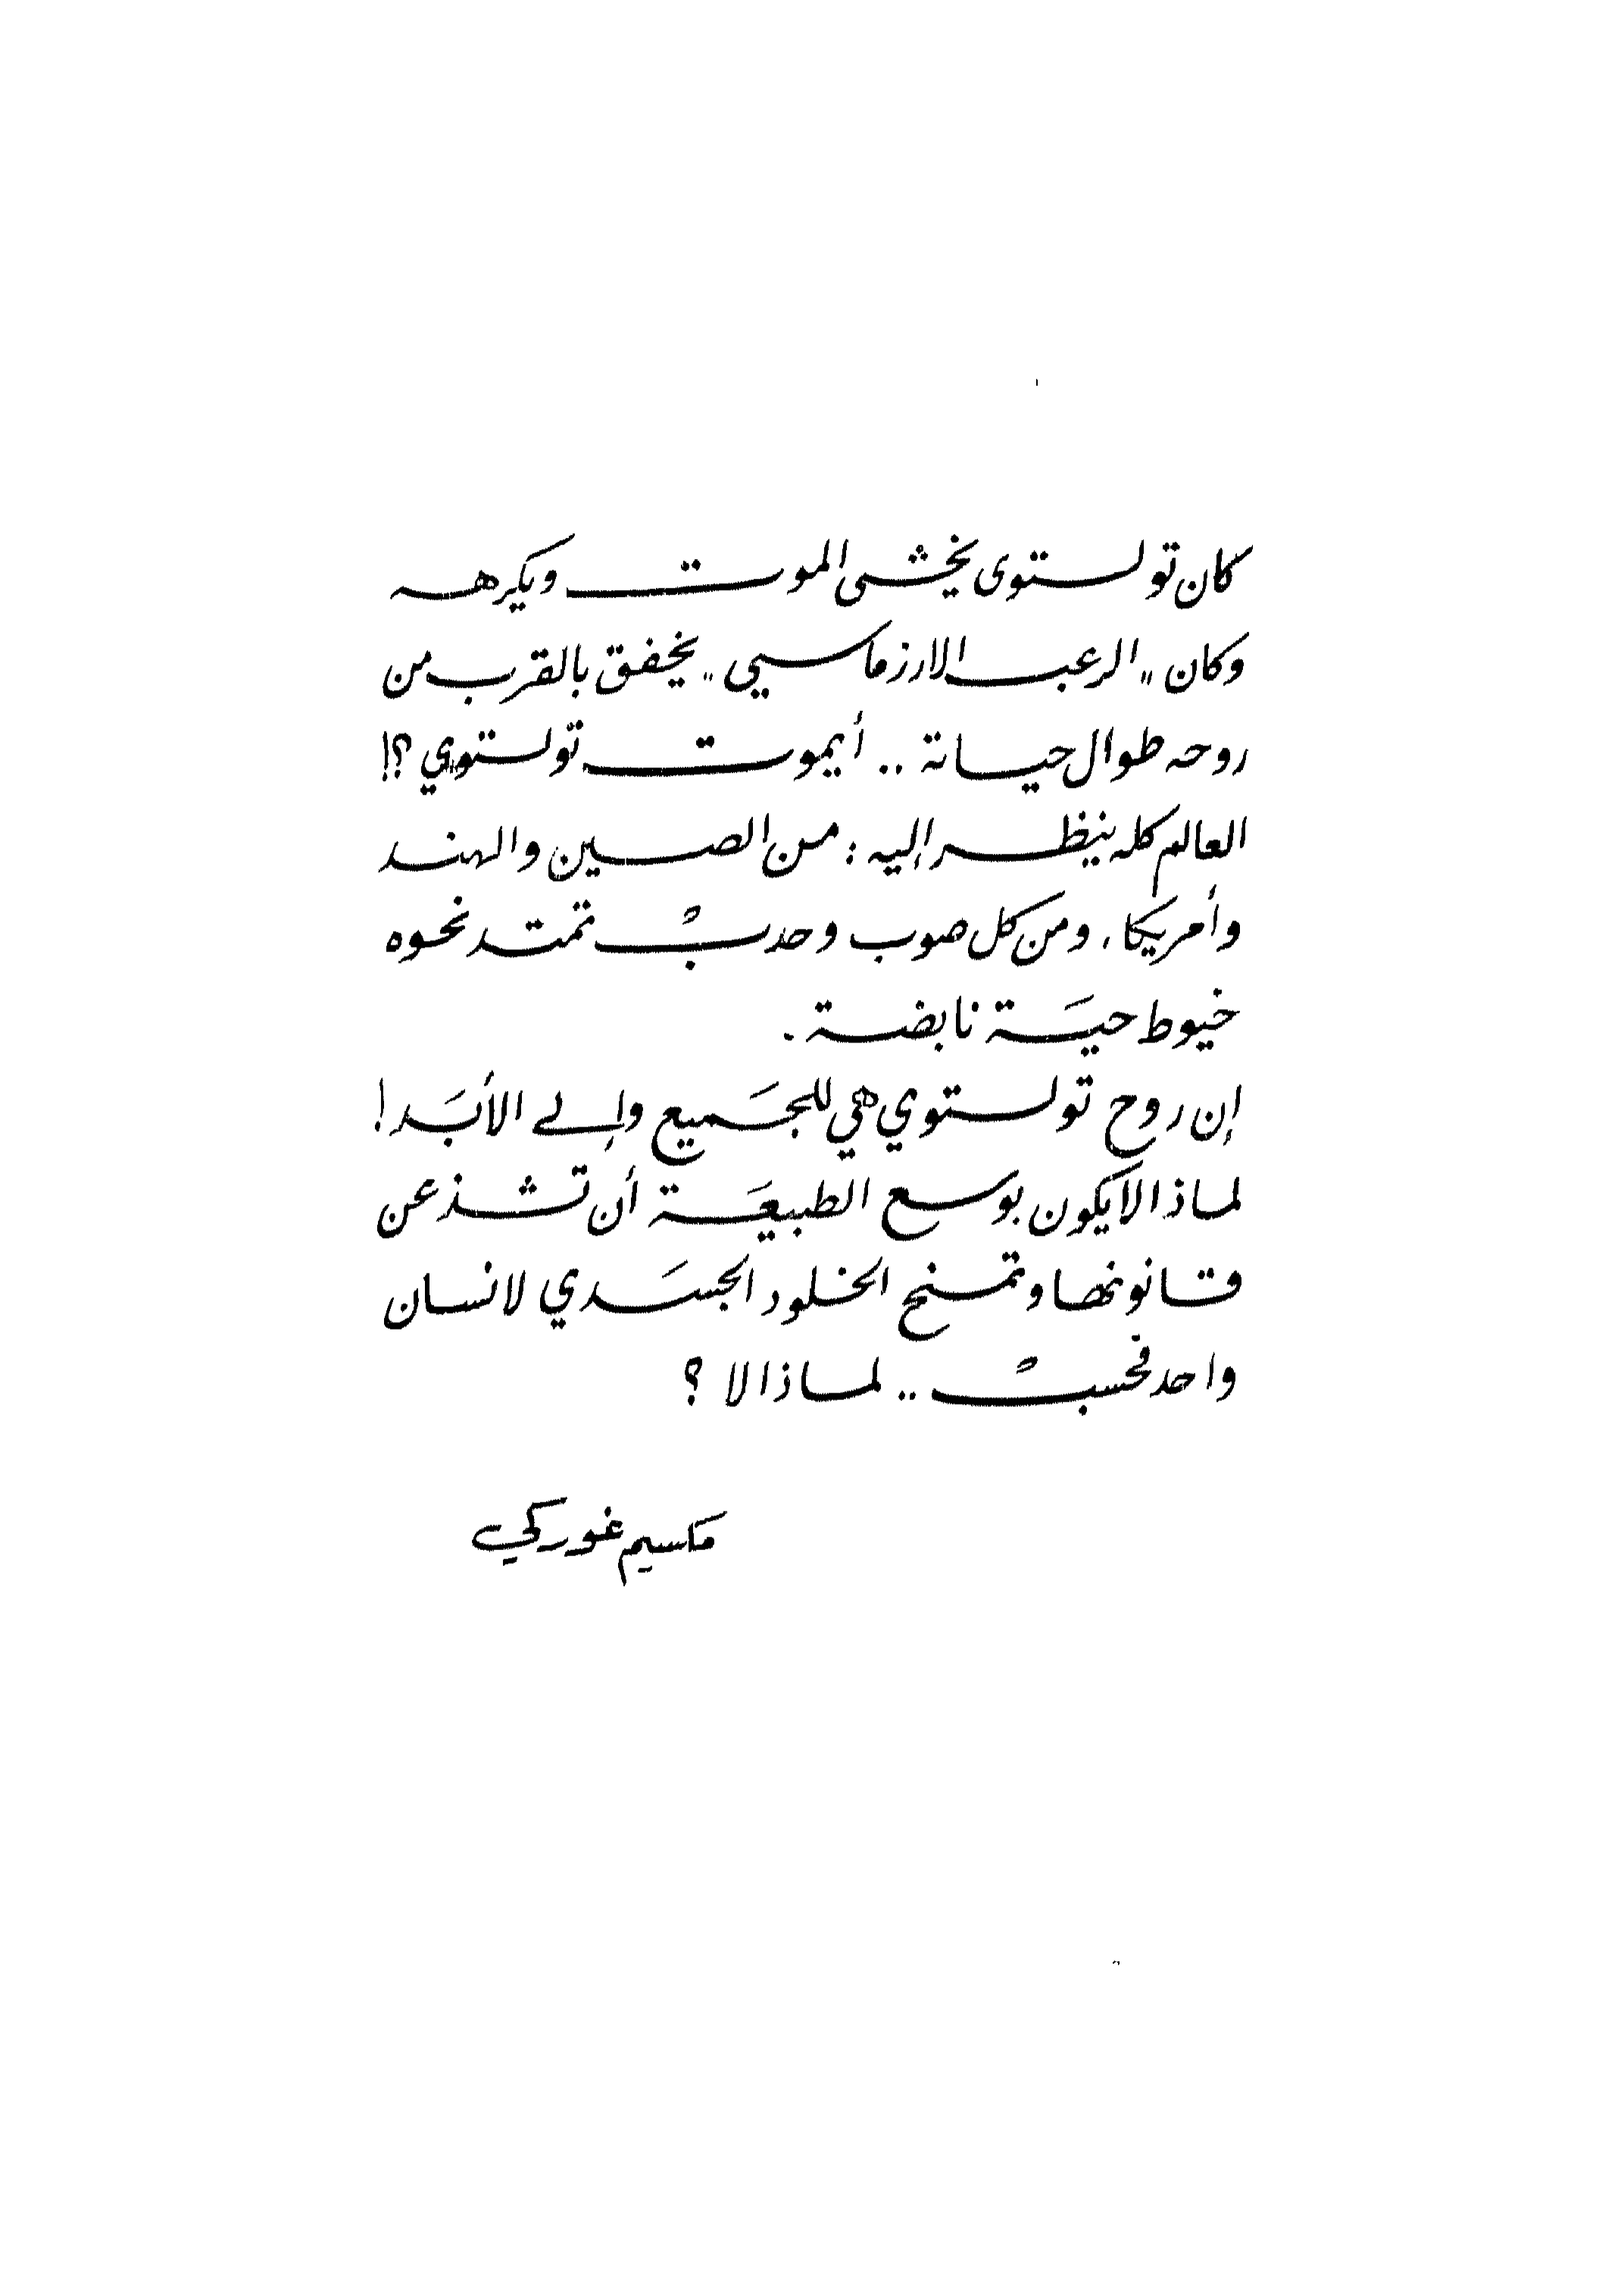 كان تولستوى يخشى الموت ويكرهه
وكان "الرعب الارزماسيي" يخفق بالقرب من
روحه طوال حياتة .. أيموت تولستوي ؟!
العالم كله ينظر إليه : من الصين والهند
وأمريكا، ومن كل صوب وحدبْ تمتد نحوه
خيوط حيَة نابضة .
إن روح تولستوي هي للجَميع وإلى الأبَد !
لماذا لا يكون بوسع الطبيعَة أن تشذ عن
قانونها وتمنح الخلود الجسَدي لانسان
واحد فحسبْ .. لماذا لا ؟
مكسيم غوركي